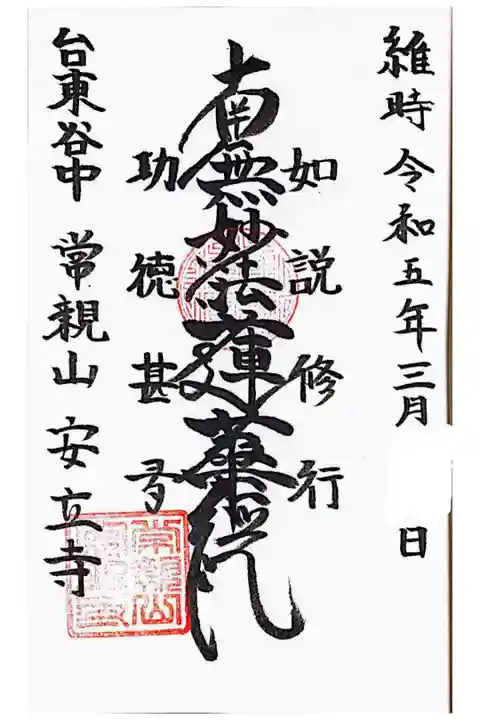 維時令和五年三月 日
如説修行
南無妙法蓮華経
功徳甚多
台東谷中 常親山 安立寺